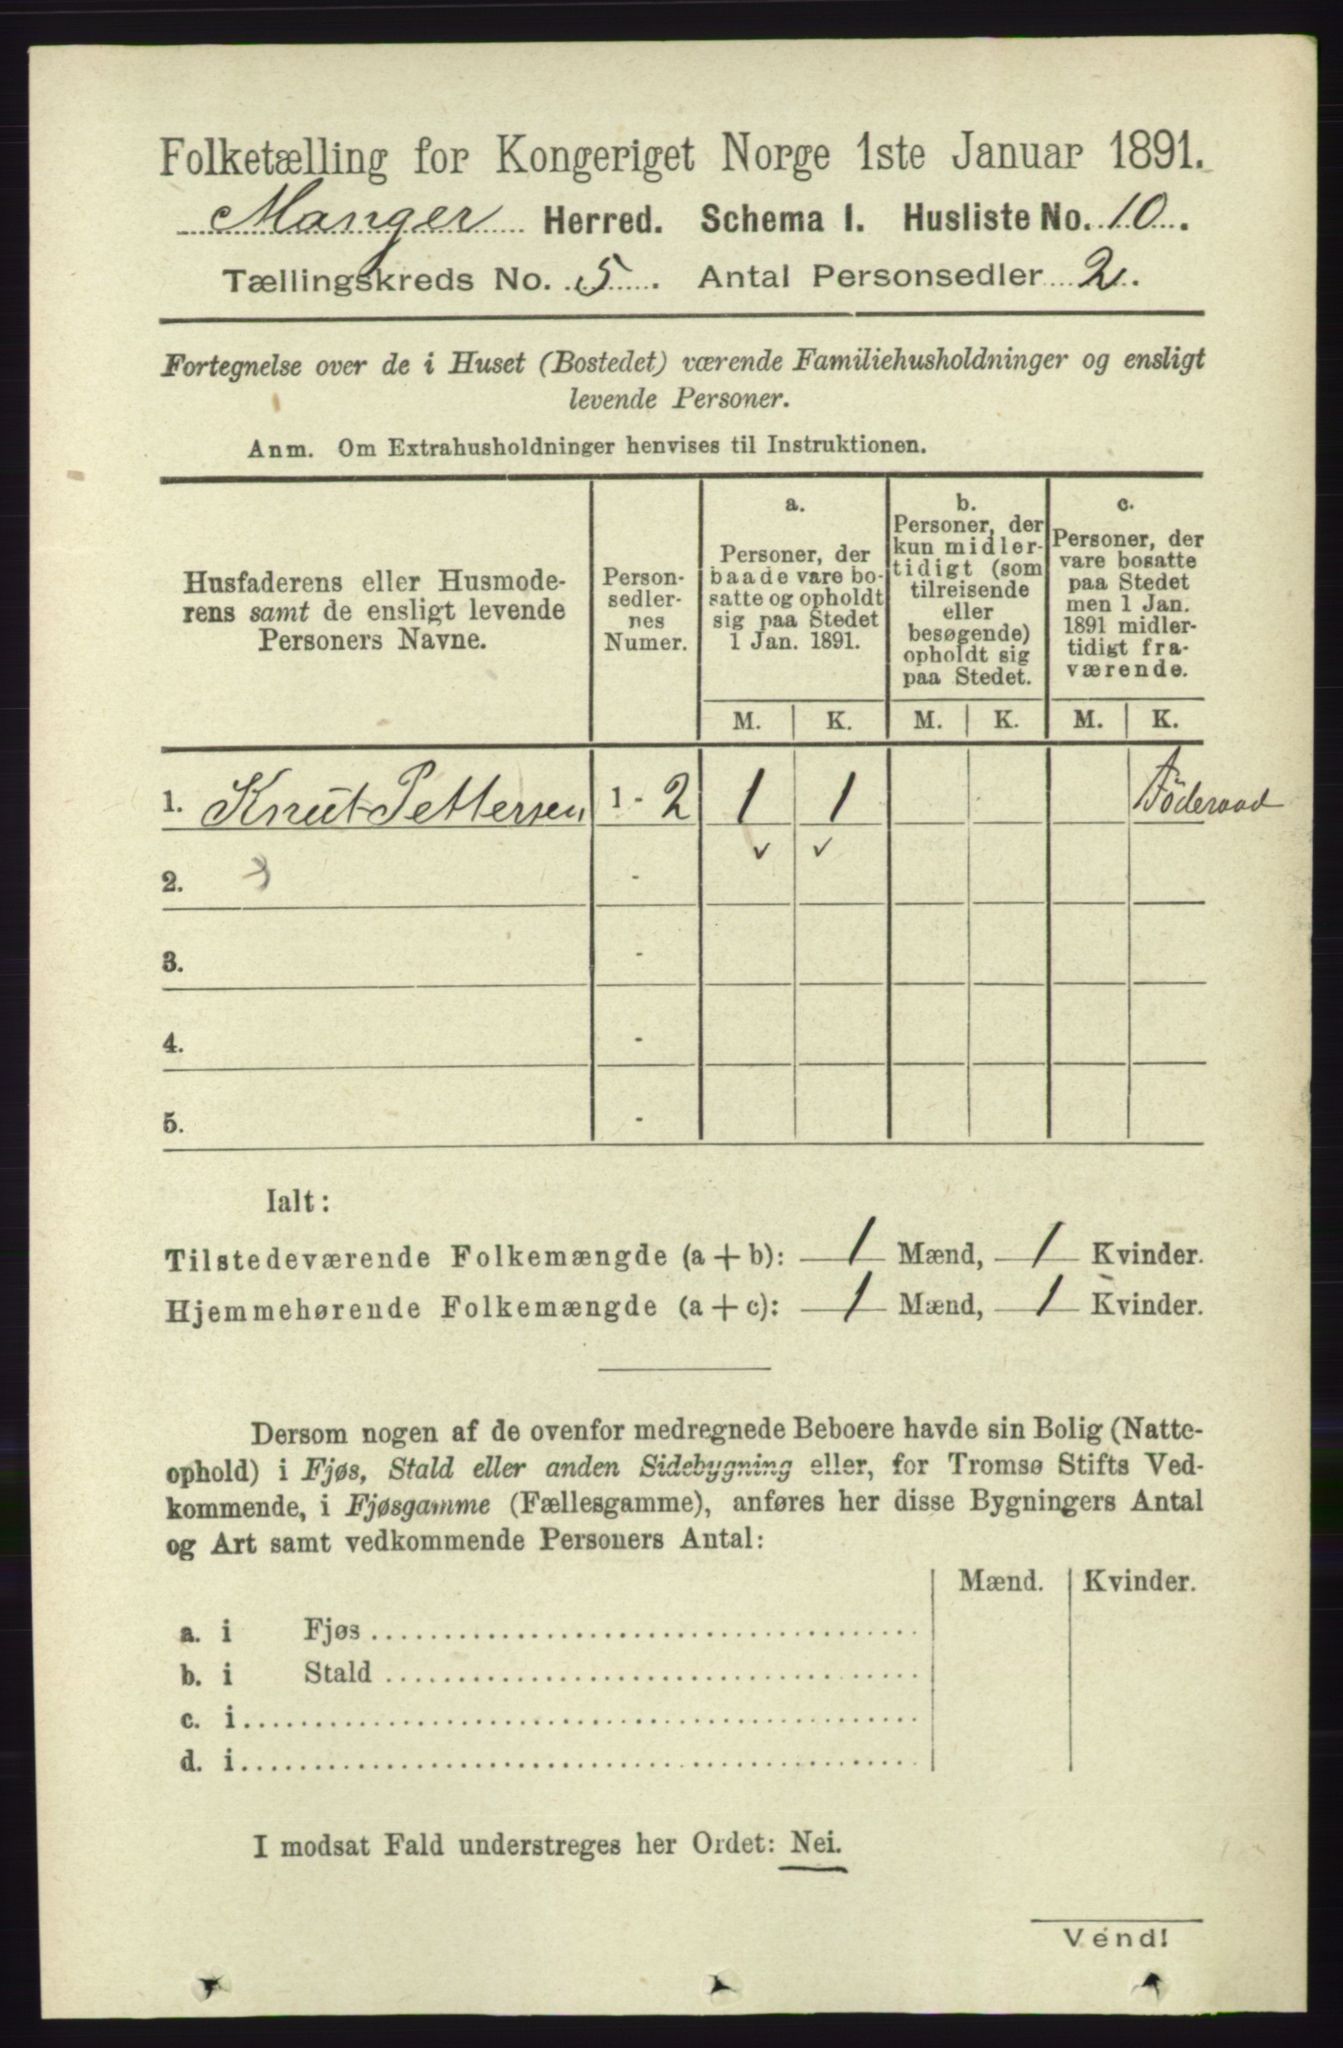 Folketælling for Kongeriget Norge 1ste Januar 1891.
Manger Herred. Schema I. Husliste No. 10.
Tællingskreds No. 5. Antal Personsedler 2.
Fortegnelse over de i Huset (Bostedet) værende Familiehusholdninger og ensligt
levende Personer.
Anm. Om Extrahusholdninger henvises til Instruktionen.
Husfaderens eller Husmode-
rens samt de ensligt levende
Personers Navne.
Person-
sedler-
nes
Numer.
a.
Personer, der
baade vare bo-
satte og opholdt
sig paa Stedet
1 Jan. 1891.
b.
Personer, der
kun midler-
tidigt (som
tilreisende
eller
besøgende)
opholdt sig
paa Stedet.
c.
Personer, der
vare bosatte
paa Stedet
men 1 Jan.
1891 midler-
tidigt fra-
værende.
M. K. M. K. M. K.
1. Knut Pettersen 1 - 2 1 1 Föderaad
✓ ✓
2. -
3. -
4. -
5. -
Ialt:
Tilstedeværende Folkemængde (a + b): 1 Mænd, 1 Kvinder.
Hjemmehørende Folkemængde (a + c): 1 Mænd, 1 Kvinder.
Dersom nogen af de ovenfor medregnede Beboere havde sin Bolig (Natte-
ophold) i Fjøs, Stald eller anden Sidebygning eller, for Tromsø Stifts Ved-
kommende, i Fjøsgamme (Fællesgamme), anføres her disse Bygningers Antal
og Art samt vedkommende Personers Antal:
Mænd. Kvinder.
a. i Fjøs
b. i Stald
c. i
d. i
I modsat Fald understreges her Ordet: Nei.
Vend!